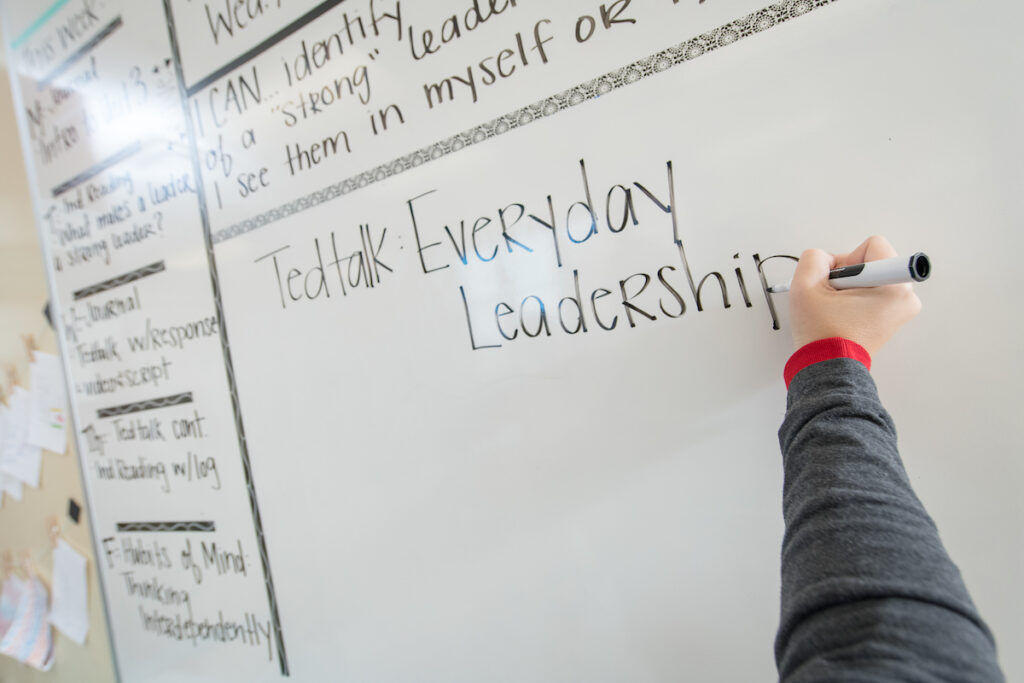 This Week:
Unit 3
T: Ind Reading
What makes a leader
a strong leader?
Journal
Tedtalk w/response
video+script
Th: Tedtalk cont.
Ind Reading w/log
F: Habits of Mind:
Thinking
Interdependently
Wed.,
I CAN... identify
of a "strong" leader
I see them in myself or
Tedtalk: Everyday
Leadership